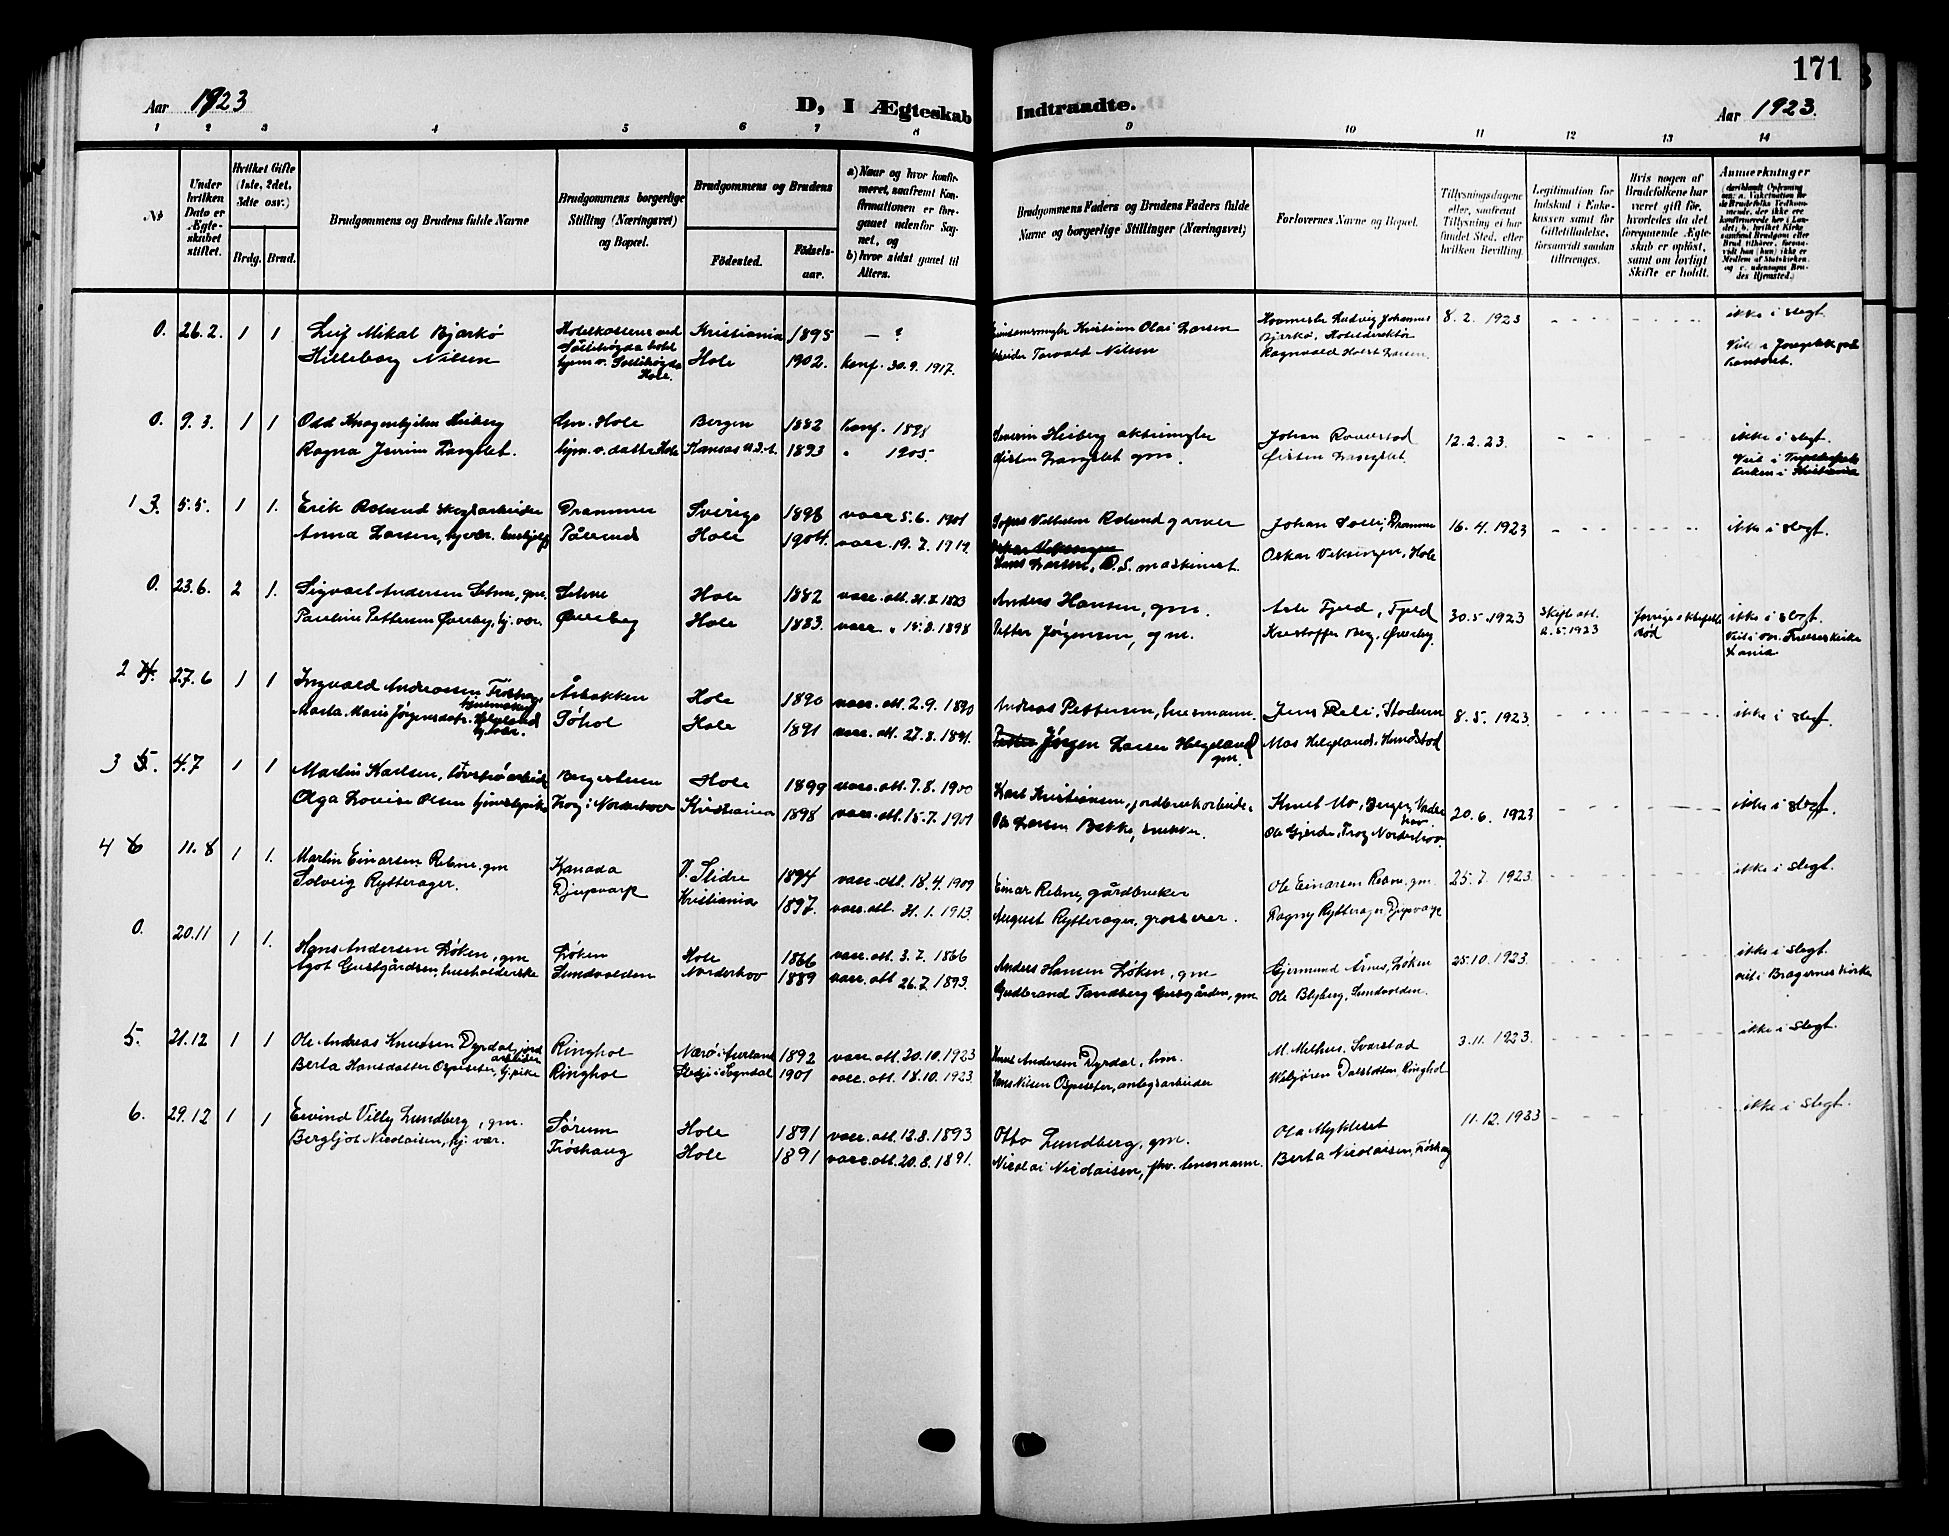 171
Aar 1923
D, I Ægteskab Indtraadte.
Aar 1923.
1 2 3 4 5 6 7 8 9 10 11 12 13 14
No
Under hvilken Dato er Ægteskabet stiftet.
Hvilket Gifte (1ste, 2det, 3die osv.)
Brdg. Brud.
Brudgommens og Brudens fulde Navne
Brudgommens borgerlige Stilling (Næringsvei) og Bopæl.
Brudgommens og Brudens
Fødested. Fødselsaar.
a) Naar og hvor konfirmeret, saafremt Konfirmationen er foregaaet udenfor Sognet, og
b) hvor sidst gaaet til Alters.
Brudgommens Faders og Brudens Faders fulde Navne og borgerlige Stillinger (Næringsvei)
Forlovernes Navne og Bopæl.
Tillysningsdagene eller, saafremt Tillysning ei har fundet Sted, efter hvilken Bevilling.
Legitimation for Indskud i Enkekassen samt for Giftetilladelse, forsaavidt saadan tiltrænges.
Hvis nogen af Brudefolkene har været gift før, hvorledes da det foregaaende Ægteskab er opløst, samt om lovligt Skifte er holdt.
Anmærkninger
0. 26.2. 1 1 Leif Mikal Bjarkö Kristiania 1895 – ? Kristian Olai Larsen Ludvig Johannes 8. 2. 1923 ikke i slegt.
Hilleborg Nilsen hjem v. Sollihögda Hole. Hole 1902. Konf. 30.9. 1917. Torvald Nilsen Bjarkö, Hoteldirektör
Ragnvald Holst Larsen.
0. 9.3. 1 1 Odd Heiberg Hole Bergen 1882 Konf. 1898 Severin Heiberg Johan 12.2.23. ikke i slegt.
Ragna Langslet. hjem. v. datter Hole Kansas U.S.A. 1893 " 1905. Langslet gm. Langslet. Kristiania
1 3. 5.5. 1 1. Erik Rolund skogsarbeider Drammen Sverige 1898 vacc. 5.6. 1901 Vilhelm Rolund garver Johan Solli, Drammen 16.4.1923 ikke i slegt.
Anna Larsen, hj. vær. Hole 1904. vacc. 19.7. 1914 Larsen, D.S. maskinist. Oskar Veksingen, Hole
0. 23.6. 2 1. Sigvart Andersen Selme, gm. Selme Hole 1882 vacc. att. 31.8.1883 Anders Hansen, gm. Asle Fjeld, Fjeld 30.5.1923 Skifte att. 2.5.1923 forrige ektefelle död ikke i slegt.
Pauline Pettersen Överby, hj. vær. Överby Hole 1883. vacc. " 15.8.1898 Petter Jörgensen, gm. Kristoffer Berg, Överby
2 4. 27.6 1 1 Ingvald Andreassen Åsbakken Hole 1890 vacc. att. 2.9.1890 Andreas Pettersen, husmann. Jens Reli, Stadum 8.5.1923. ikke i slegt.
Marta Marie Jörgensdatr. Helgeland hj. vær. Hole 1891 vacc. att. 27.8.1891. Jörgen Larsen Helgeland gm. Mas Helgeland, Hundstad
3 5. 4.7 1 1 Martin Karlsen, Hole 1899 vacc. att. 7.8. 1900 Karl Kristiansen, jordbruksarbeider Knut Mo, Berger, 20.6. 1923 ikke i slegt.
Olga Lovise Olsen Norderhov Kristiania 1898 vacc. att. 15.7.1901 Ole Larsen Bekke, snekker. Ole Gjerde, Norderhov.
4 6 11.8 1 1. Martin Einarsen Rebne, gm Kanada V. Slidre 1894 vacc. att. 18.4.1909 Einar Rebne, gårdbruker Ole Einarsen Rebne, gm. 25.7.1923. ikke i slegt.
Solveig Rytterager. Djupvarp Kristiania 1897. vacc. att. 31.1.1913. August Rytterager, grosserer. Ragny Rytterager, Djupvarp
0. 20.11 1 1. Hans Andersen Löken, gm Löken Hole 1866 vacc. att. 3.7. 1866 Anders Hansen Löken, gm Gjermund Årnes, Löken 25.10.1923. ikke i slegt.
Agot Gustgården, husholderske Sundvolden Norderhov 1889 vacc. att. 26.7. 1893. Gudbrand Tandberg Gustgården, gm Ole Blyberg, Sundvolden. vist i Bragernes kirke
5. 21.12 1 1 Ole Andreas Knudsen Dyrdal, Ringhol Nærö i Aurland 1892 vacc. att. 20.10.1923 Knut Andersen Dyrdal, M. Melhus, Svarstad 3.11.1923. ikke i slegt.
Berta Hansdatter Ringhol Sogndal 1901 vacc. att. 18.10.1923. Hans Nilsen anlegsarbeider Dalslotten, Ringhol
6. 29.12 1 1 Eivind Villy Lundberg, gm. Sörum Hole 1891 vacc. att. 12.8.1893 Otto Lundberg, gm. Ola Myklest 11.12.1923 ikke i slegt.
Bergljot Nicolaisen, hj. vær. Fröshaug Hole 1891 vacc. att. 20.8.1891. Nicolai Nicolaisen, fhv. lensmann. Berta Nicolaisen, Fröshaug